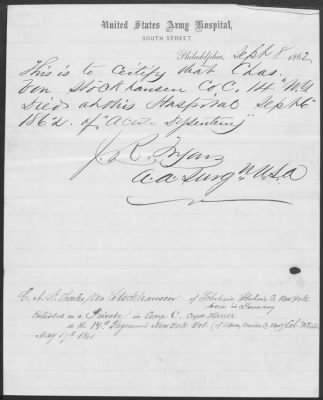 United States Army Hospital,
SOUTH STREET.
Philadelphia, Sept 8 1862
This is to Certify that Chas.
Von Stockhausen Co. C, 14" N.Y
Died at this Hospital Sept 6"
1862. of "Acute Dysentery"
J. R.
A. A. Surgn U.S.A
Charles Von Stockhausen of Schoharie, Schoharie Co New York
born in Germany
Enlisted as a Private in Comp. C. Capt
in the 14th Regiment New York Vol. Col. McQuade
May 17th 1861